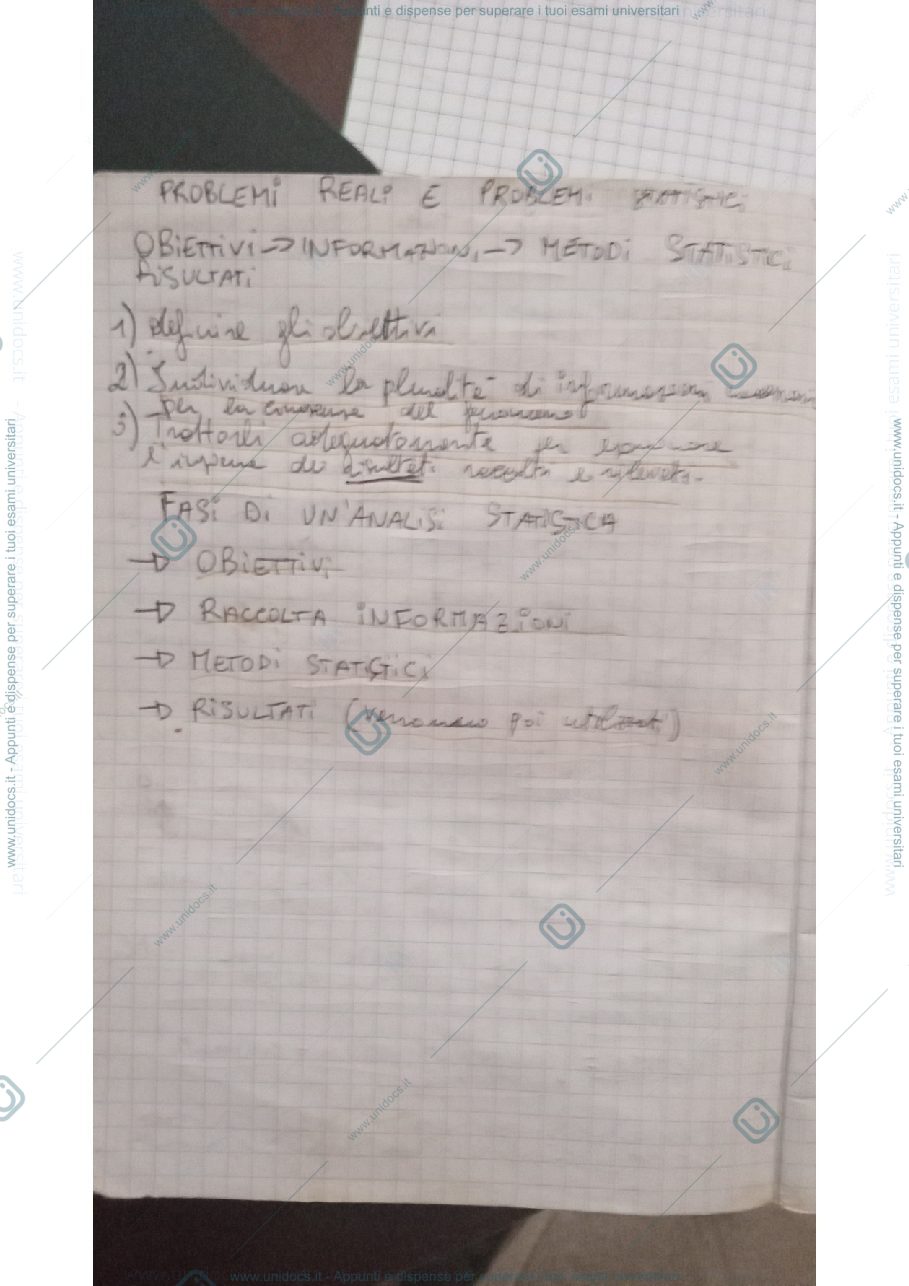 www.unidocs.it - Appunti e dispense per superare i tuoi esami universitari
PROBLEMI REALI E PROBLEMI STATISTICI
OBIETTIVI → INFORMAZIONI → METODI STATISTICI
RISULTATI
1) definire gli obiettivi
2) Individuare la pluralità di informazioni
per la conoscenza del fenomeno
3) Trattarli adeguatamente per
l'insieme dei risultati raccolti e
FASI DI UN'ANALISI STATISTICA
→ OBIETTIVI
→ RACCOLTA INFORMAZIONI
→ METODI STATISTICI
→ RISULTATI (verranno poi utilizzati)
www.unidocs.it - Appunti e dispense per superare i tuoi esami universitari
www.unidocs.it - Appunti e dispense per superare i tuoi esami universitari
www.unidocs.it
www.unidocs.it
www.unidocs.it
www.unidocs.it
www.unidocs.it
www.unidocs.it
www.unidocs.it - Appunti e dispense per